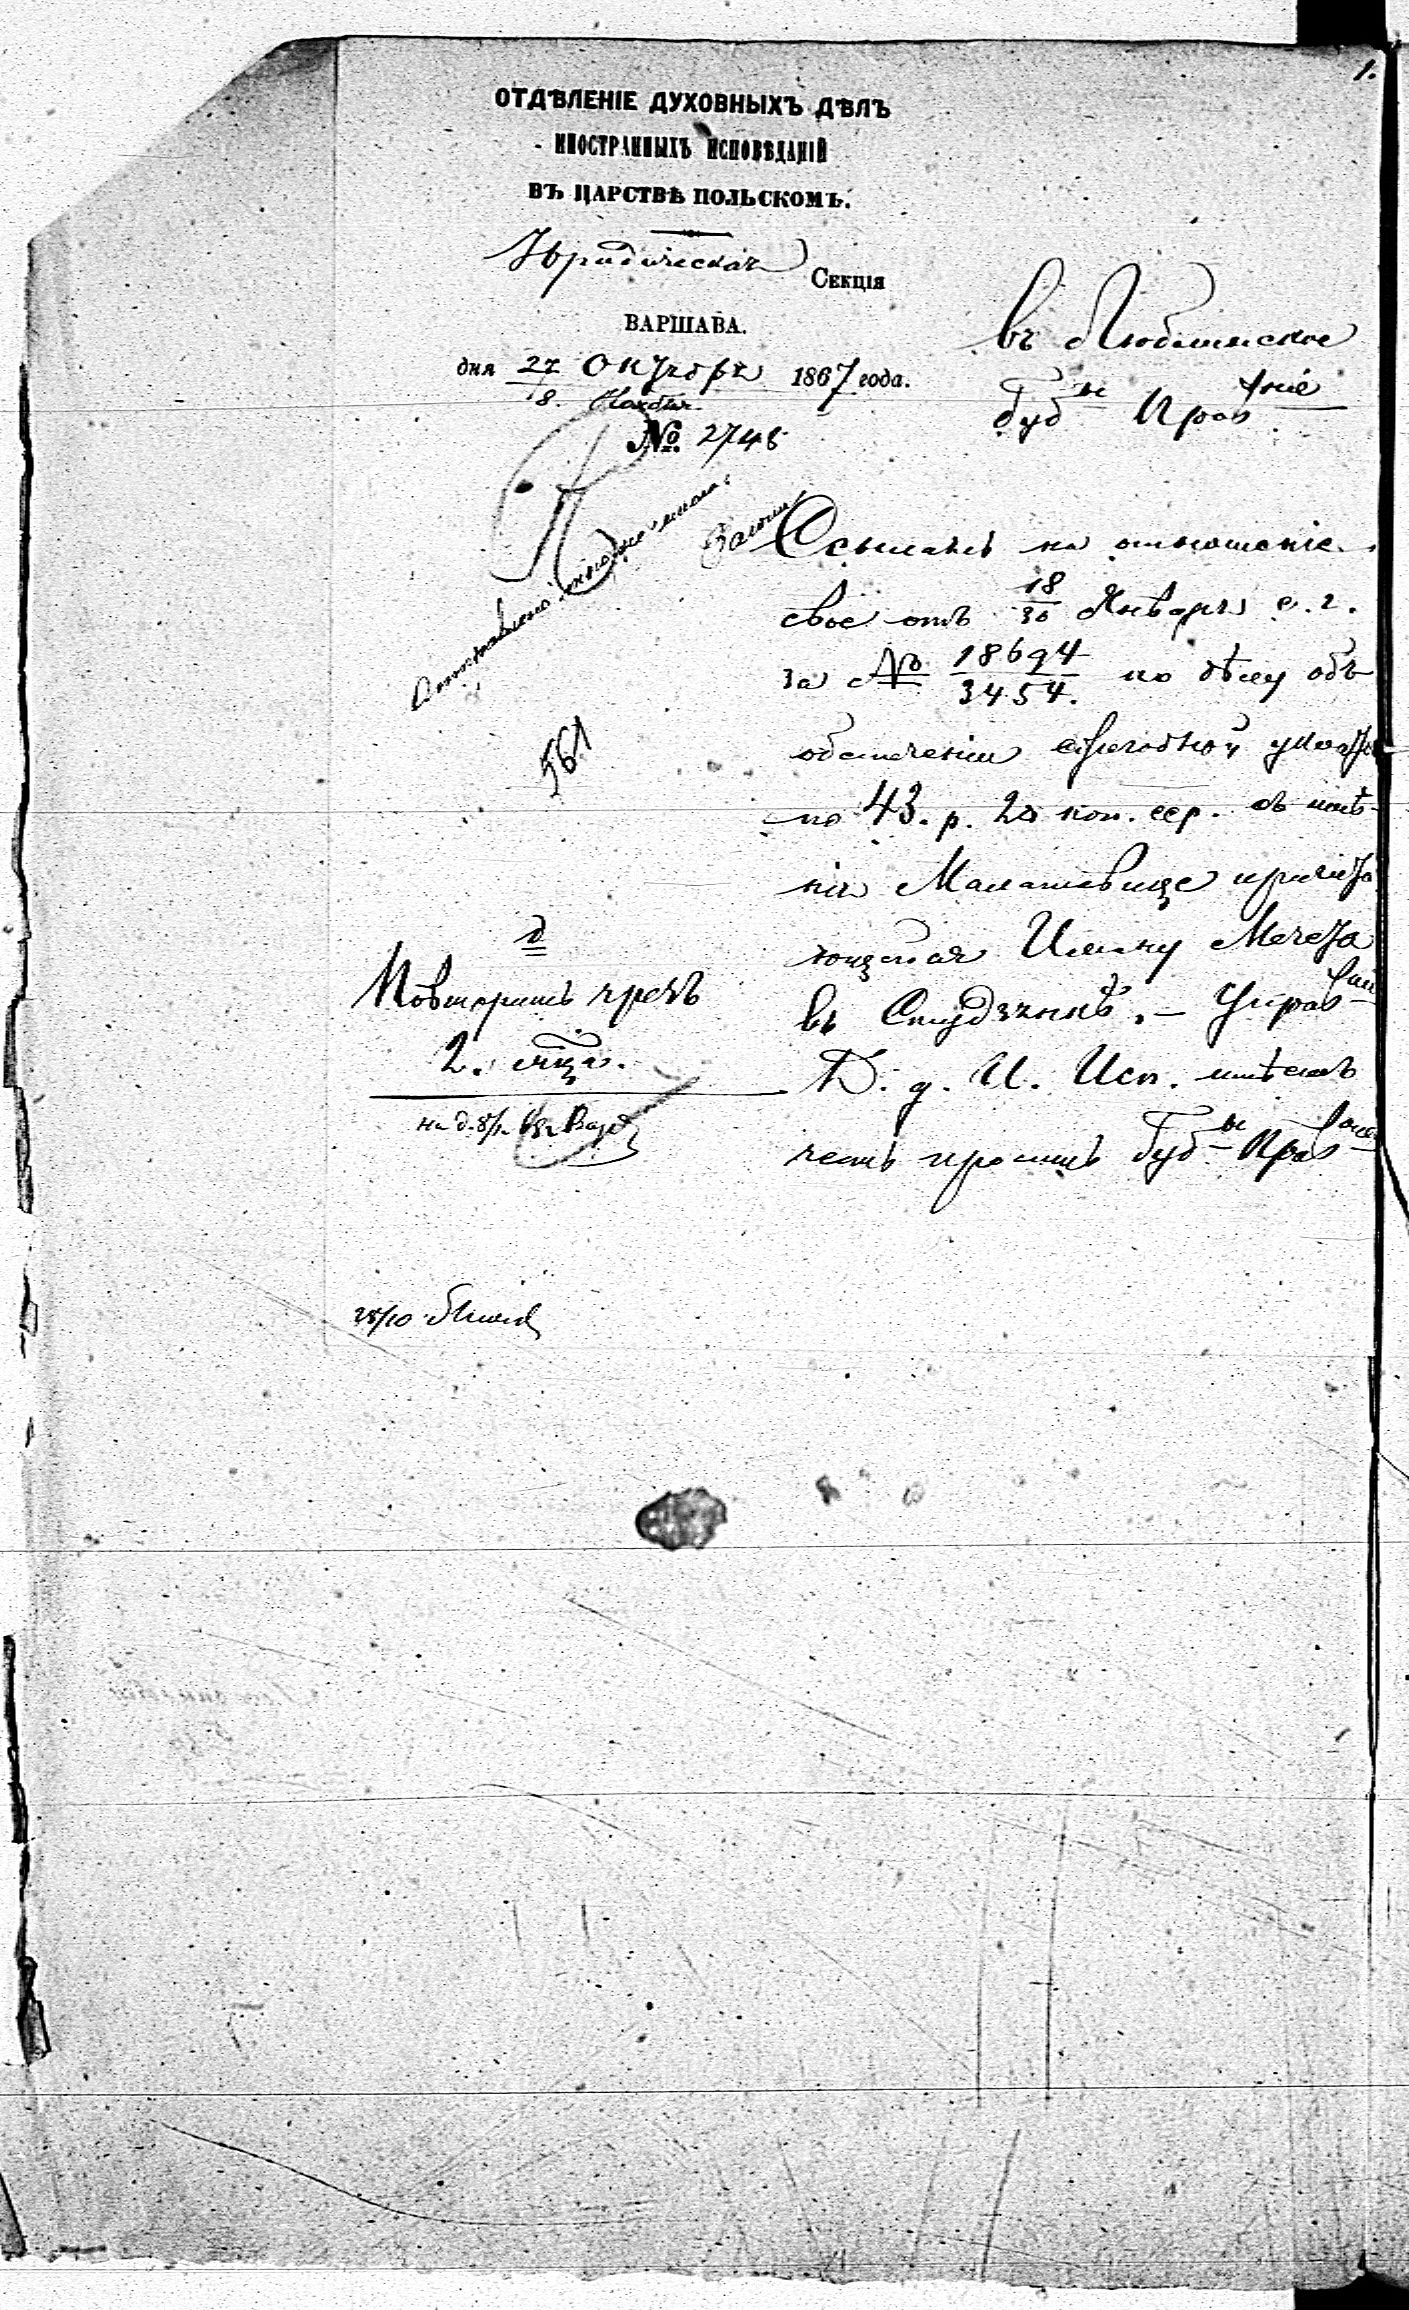 1.
ОТДѢЛЕНІЕ ДУХОВНЫХЪ ДѢЛЪ
ИНОСТРАННЫХЪ ИСПОВѢДАНІЙ
ВЪ ЦАРСТВѢ ПОЛЬСКОМЪ.
Юридическая Секція
ВАРШАВА.
дня 27 Октября 1867 года.
8. Ноября
№ 2748
въ Люблинское
Губ ое Прав ніе
Ссылаясь на отношеніе
свое отъ 18/30 Января с. г.
за № 18694/3454. по дѣлу объ
обезпеченіи ежегодной уплаты
по 43. р. 20 коп. сер. съ имѣ-
нія Малашевице причита
ющейся Иману Мечета
въ Студзянкѣ. – Управ
Д. д. И. Исп. имѣетъ
честь просить Губ ое Прав
561
Повторить чрезъ
2. мца.
28/10